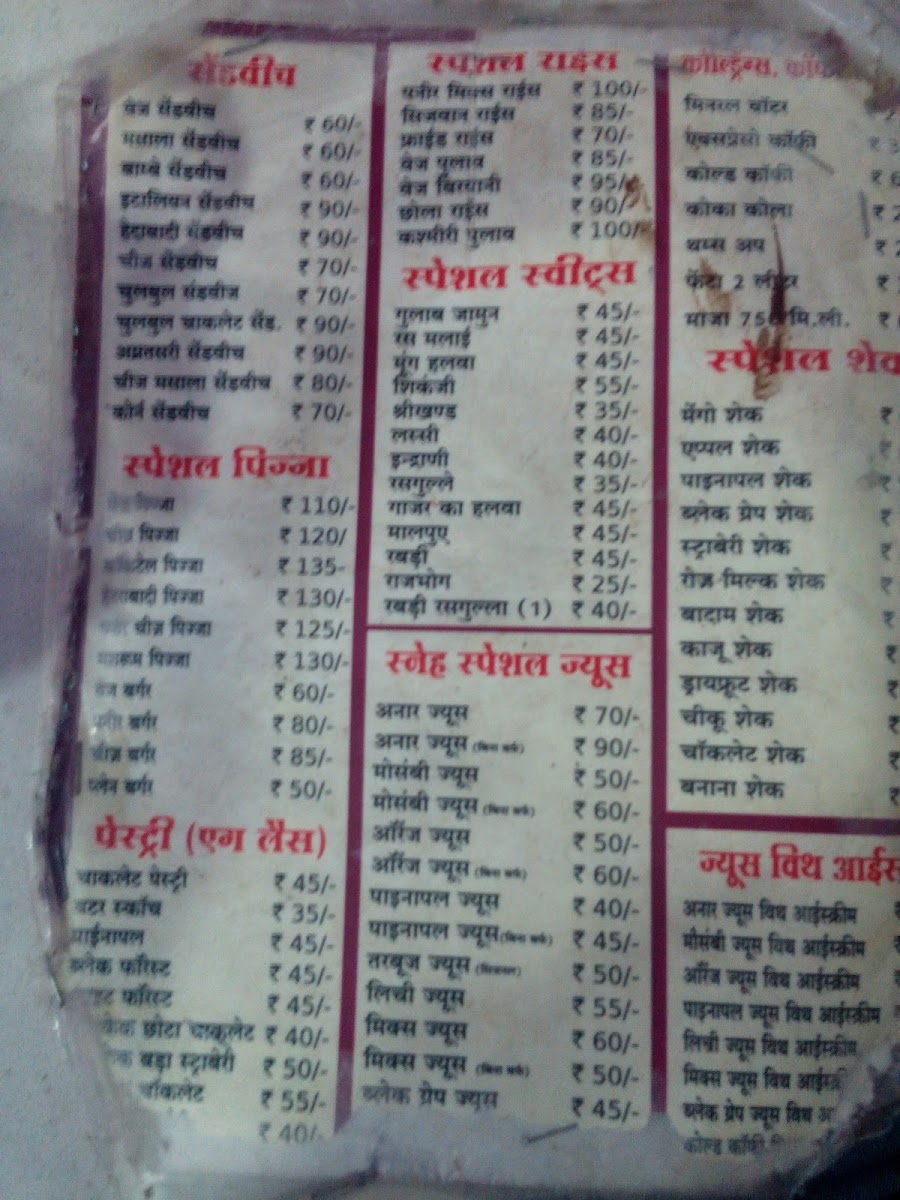 सेंडवीच
वेज सेंडवीच ₹ 60/-
मसाला सेंडवीच ₹ 60/-
बाम्बे सेंडवीच ₹ 60/-
इटालियन सेंडवीच ₹ 90/-
हेद्राबादी सेंडवीच ₹ 90/-
चीज सेंडवीच ₹ 70/-
चुलबुल सेंडवीज ₹ 70/-
चुलबुल चाकलेट सेंड. ₹ 90/-
अम्रतसरी सेंडवीच ₹ 90/-
चीज मसाला सेंडवीच ₹ 80/-
कोर्न सेंडवीच ₹ 70/-
स्पेशल पिज्जा
पिज्जा ₹ 110/-
पिज्जा ₹ 120/
पिज्जा ₹ 135-
पिज्जा ₹ 130/-
चीज पिज्जा ₹ 125/-
मशरूम पिज्जा ₹ 130/-
वेज बर्गर ₹ 60/-
बर्गर ₹ 80/-
चीज बर्गर ₹ 85/-
प्लेन बर्गर ₹ 50/-
पेस्ट्री (एग लैस)
चाकलेट पेस्ट्री ₹ 45/-
बटर स्कॉच ₹ 35/-
पाईनापल ₹ 45/-
ब्लेक फॉरेस्ट ₹ 45/-
फॉरेस्ट ₹ 45/-
छोटा चाकलेट ₹ 40/-
बड़ा स्ट्राबेरी ₹ 50/-
चॉकलेट ₹ 55/-
₹ 40/-
स्पेशल राइस
पनीर मिक्स राईस ₹ 100/-
सिजवान राईस ₹ 85/-
फ्राईड राइस ₹ 70/-
वेज पुलाव ₹ 85/-
वेज बिरयानी ₹ 95/-
छोला राईस ₹ 90/-
कश्मीरी पुलाव ₹ 100/-
स्पेशल स्वीट्स
गुलाब जामुन ₹ 45/-
रस मलाई ₹ 45/-
मूंग हलवा ₹ 45/-
शिकंजी ₹ 55/-
श्रीखण्ड ₹ 35/-
लस्सी ₹ 40/-
इन्द्राणी ₹ 40/-
रसगुल्ले ₹ 35/-
गाजर का हलवा ₹ 45/-
मालपुए ₹ 45/-
रबड़ी ₹ 45/-
राजभोग ₹ 25/-
रबड़ी रसगुल्ला (1) ₹ 40/-
स्नेह स्पेशल ज्यूस
अनार ज्यूस ₹ 70/-
अनार ज्यूस (बिना बर्फ) ₹ 90/-
मोसंबी ज्यूस ₹ 50/-
मोसंबी ज्यूस (बिना बर्फ) ₹ 60/-
ऑरेंज ज्यूस ₹ 50/-
ऑरेंज ज्यूस (बिना बर्फ) ₹ 60/-
पाइनापल ज्यूस ₹ 40/-
पाइनापल ज्यूस (बिना बर्फ) ₹ 45/-
तरबूज ज्यूस ₹ 50/-
लिची ज्यूस ₹ 55/-
मिक्स ज्यूस ₹ 60/-
मिक्स ज्यूस (बिना बर्फ) ₹ 50/-
ब्लेक ग्रेप ज्यूस ₹ 45/-
कोल्ड्रिंग्स,
मिनरल वॉटर
एक्सप्रेसो कॉफी ₹
कोल्ड कॉफी ₹
कोका कोला ₹
थम्स अप ₹
फेंटा 2 लीटर ₹
माजा 750 मि.ली. ₹
स्पेशल
मेंगो शेक ₹
एप्पल शेक ₹
पाइनापल शेक ₹
ब्लेक ग्रेप शेक ₹
स्ट्राबेरी शेक ₹
रोज़ मिल्क शेक ₹
बादाम शेक ₹
काजू शेक ₹
ड्रायफ्रूट शेक ₹
चीकू शेक ₹
चॉकलेट शेक ₹
बनाना शेक ₹
ज्यूस विथ
अनार ज्यूस विथ आईस्क्रीम
मौसंबी ज्यूस विथ आईस्क्रीम
ऑरेंज ज्यूस विथ आईस्क्रीम
पाइनापल ज्यूस विथ आईस्क्रीम
लिची ज्यूस विथ आईस्क्रीम
मिक्स ज्यूस विथ
ब्लेक ग्रेप ज्यूस विथ
कोल्ड कॉफी